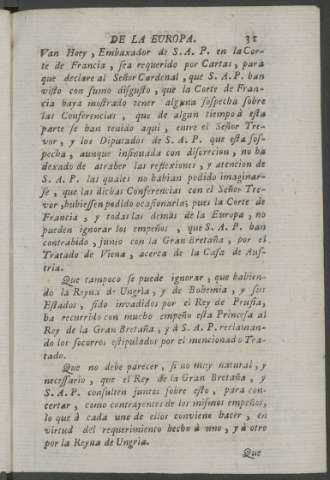 DE LA EUROPA. 31
Van Hoey, Embaxador de S. A. P. en la Cor-
te de Francia, sea requerido por Cartas, para
que declare al Señor Cardenal, que S. A. P. han
visto con sumo disgusto, que la Corte de Fran-
cia haya mostrado tener alguna sospecha sobre
las Conferencias, que de algun tiempo à esta
parte se han tenido aqui, entre el Señor Tre-
vor, y los Diputados de S. A. P. que esta sos-
pecha, aunque insinuada con discrecion, no ha
dexado de atraher las reflexiones, y atencion de
S. A. P. las quales no habian podido imaginar-
se, que las dichas Conferencias con el Señor Tre-
vor, hubiessen podido ocasionarla; pues la Corte de
Francia, y todas las demàs de la Europa, no
pueden ignorar los empeños, que S. A. P. han
contrahido, junto con la Gran Bretaña, por el
Tratado de Viena, acerca de la Casa de Aus-
tria.
Que tampoco se puede ignorar, que habien-
do la Reyna de Ungria, y de Bohemia, y sus
Estados, sido invadidos por el Rey de Prusia,
ha recurrido con mucho empeño esta Princesa al
Rey de la Gran Bretaña, y à S. A. P. reclaman-
do los socorros estipulados por el mencionado Tra-
tado.
Que no debe parecer, si no muy natural, y
necessario, que el Rey de la Gran Bretaña, y
S. A. P. consulten juntos sobre esto, para con-
certar, como contrayentes de los mismos empeños,
lo que à cada uno de ellos conviene hacer, en
virtud del requerimiento hecho à uno, y à otro
por la Reyna de Ungria.
Que